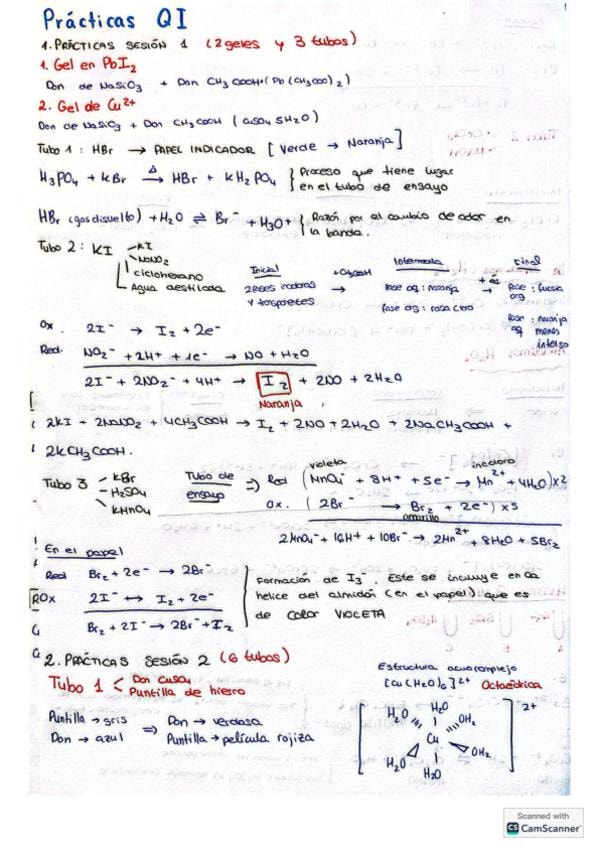 Prácticas QI
1. PRÁCTICAS SESIÓN 1 (2 geles y 3 tubos)
1. Gel en PbI₂
Don de NaSiO₃ + Don CH₃COOH (Pb(CH₃COO)₂)
2. Gel de Cu²⁺
Don de NaSiO₃ + Don CH₃COOH (CuSO₄ 5H₂O)
Tubo 1: HBr → PAPEL INDICADOR [Verde → Naranja]
H₃PO₄ + KBr →Δ HBr + KH₂PO₄ } Proceso que tiene lugar
en el tubo de ensayo
HBr (gas disuelto) + H₂O ⇌ Br⁻ + H₃O⁺ { Razón por el cambio de color en
la banda.
Tubo 2: KI
KI
NaNO₂
ciclohexano
Agua destilada
Inicial
2 fases incoloras
y transparentes
+CH₃COOH
→
Intermedia
fase org: naranja
fase aq: rosa claro
→
Final
fase: fucsia
org
fase: naranja
aq menos
intenso
Ox. 2I⁻ → I₂ + 2e⁻
Red. NO₂⁻ + 2H⁺ + 1e⁻ → NO + H₂O
2I⁻ + 2NO₂⁻ + 4H⁺ → I₂ + 2NO + 2H₂O
Naranja
2KI + 2NaNO₂ + 4CH₃COOH → I₂ + 2NO + 2H₂O + 2NaCH₃COOH +
2KCH₃COOH.
Tubo 3
KBr
H₂SO₄
KMnO₄
Tubo de
ensayo
⇒
violeta incoloro
Red (MnO₄⁻ + 8H⁺ + 5e⁻ → Mn²⁺ + 4H₂O) x2
Ox. (2Br⁻ → Br₂ + 2e⁻) x5
amarillo
2MnO₄⁻ + 16H⁺ + 10Br⁻ → 2Mn²⁺ + 8H₂O + 5Br₂
En el papel
Red Br₂ + 2e⁻ → 2Br⁻
Ox 2I⁻ ↔ I₂ + 2e⁻
Br₂ + 2I⁻ → 2Br⁻ + I₂
Formación de I₃⁻. Este se incluye en la
hélice del almidón (en el papel) que es
de color VIOLETA
2. PRÁCTICAS SESIÓN 2 (6 tubos)
Tubo 1 < Don CuSO₄
Puntilla de hierro
Puntilla → gris
Don → azul
⇒
Don → verdosa
Puntilla → película rojiza
Estructura acuocomplejo
[Cu(H₂O)₆]²⁺ Octaédrica
H₂O
H₂O OH₂
Cu
H₂O OH₂
H₂O
2+
Scanned with
CS CamScanner